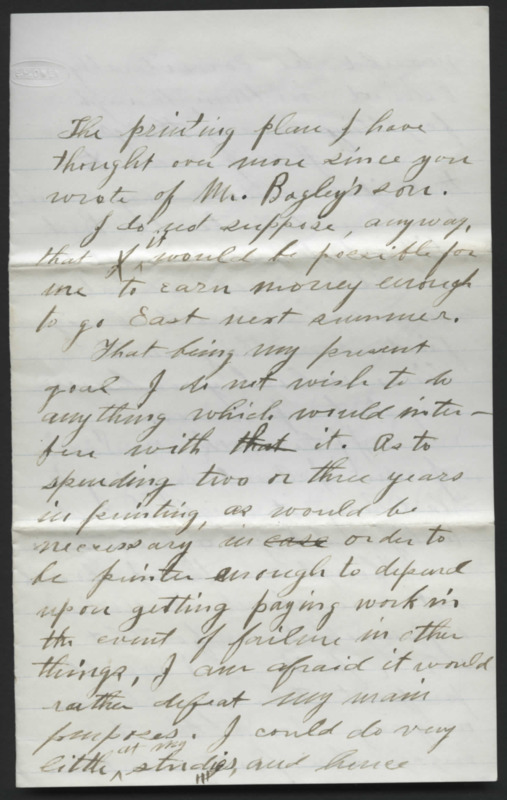 The printing plan I have
thought over more since you
wrote of Mr. Bagley's son.
I do not suppose, anyway,
that I it would be possible for
me to earn money enough
to go East next summer.
That being my present
goal I do not wish to do
anything which would inter-
fere with that it. As to
spending two or three years
in printing, as would be
necessary in case order to
be printer enough to depend
upon getting paying work in
the event of failure in other
things, I am afraid it would
rather defeat my main
purposes. I could do very
little at my studies, and hence